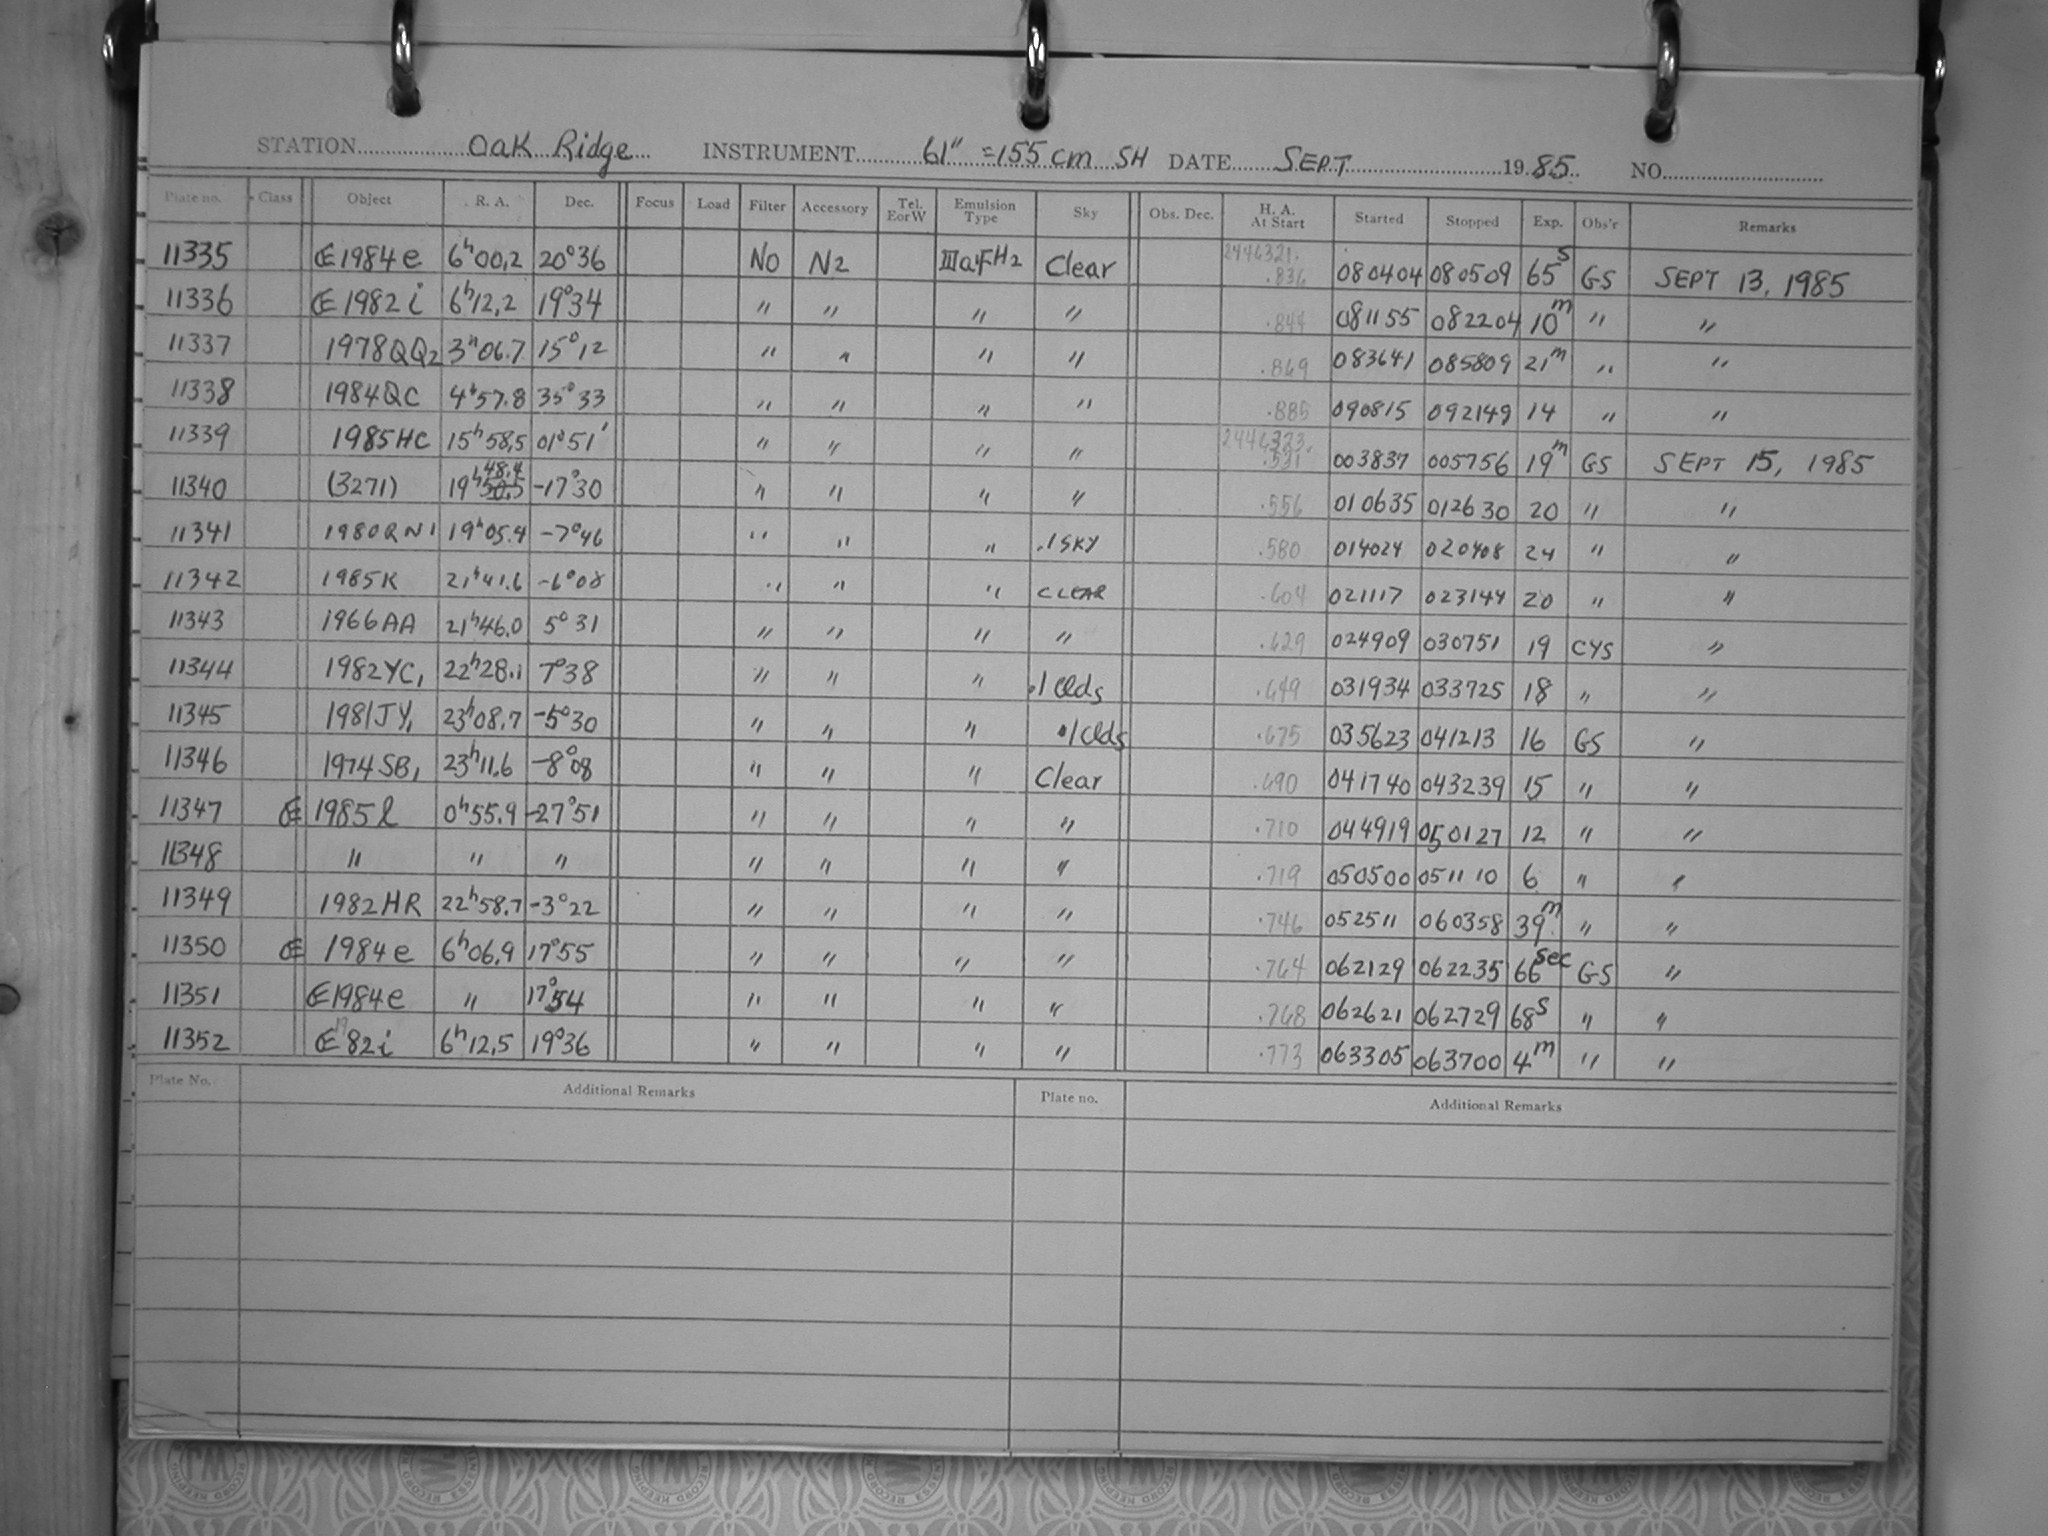 STATION Oak Ridge INSTRUMENT 61" = 155 cm SH DATE SEPT 1985 NO.
Plate no. Class Object R. A. Dec. Focus Load Filter Accessory Tel. E or W Emulsion Type Sky Obs. Dec. H. A. At Start Started Stopped Exp. Obs'r Remarks
11335 1984e 6h00.2 20°36 NO N2 IIIaF H2 Clear 2446321. .836 080404 080509 65s GS SEPT 13, 1985
11336 1982i 6h12.2 19°34 " " " " .844 081155 082204 10m " "
11337 1978QQ2 3h06.7 15°12 " " " " .869 083641 085809 21m " "
11338 1984QC 4h57.8 35°33 " " " " .885 090815 092149 14 " "
11339 1985HC 15h58.5 01°51' " " " " 2446323. .531 003837 005756 19m GS SEPT 15, 1985
11340 (3271) 19h48.4 -17°30 " " " " .556 010635 012630 20 " "
11341 1980RN1 19h05.4 -7°46 " " " .1 SKY .580 014024 020408 24 " "
11342 1985K 21h41.6 -6°08 " " " CLEAR .604 021117 023144 20 " "
11343 1966AA 21h46.0 5°31 " " " " .629 024909 030751 19 CYS "
11344 1982YC1 22h28.1 7°38 " " " .1 Clds .649 031934 033725 18 " "
11345 1981JY1 23h08.7 -5°30 " " " .1 Clds .675 035623 041213 16 GS "
11346 1974SB1 23h11.6 -8°08 " " " Clear .690 041740 043239 15 " "
11347 1985l 0h55.9 -27°51 " " " " .710 044919 050127 12 " "
11348 " " " " " " " .719 050500 051110 6 " "
11349 1982HR 22h58.7 -3°22 " " " " .746 052511 060358 39m " "
11350 1984e 6h06.9 17°55 " " " " .764 062129 062235 66sec GS "
11351 1984e " 17°54 " " " " .768 062621 062729 68s " "
11352 1982i 6h12.5 19°36 " " " " .773 063305 063700 4m " "
Plate No. Additional Remarks Plate no. Additional Remarks